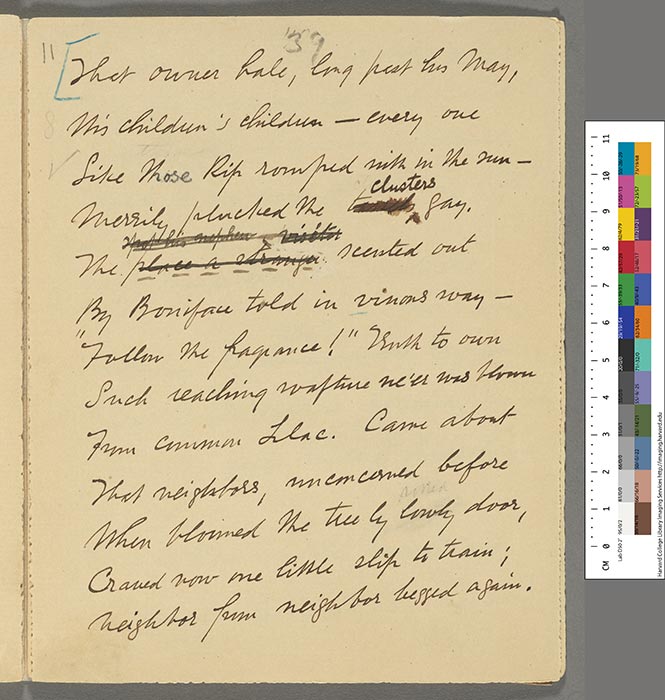 11
39
That owner hale, long past his May,
His children's children — every one
Like those Rip romped with in the sun —
Merrily plucked the clusters gay.
The place a stranger scented out
By Boniface told in vinous way —
"Follow the fragrance!" Truth to own
Such reaching wafture ne'er was blown
From common Lilac. Came about
That neighbors, unconcerned before
When bloomed the tree by lowly door,
Craved now one little slip to train;
Neighbor from neighbor begged again.
CM 0 1 2 3 4 5 6 7 8 9 10 11
Harvard College Library Imaging Services http://imaging.harvard.edu